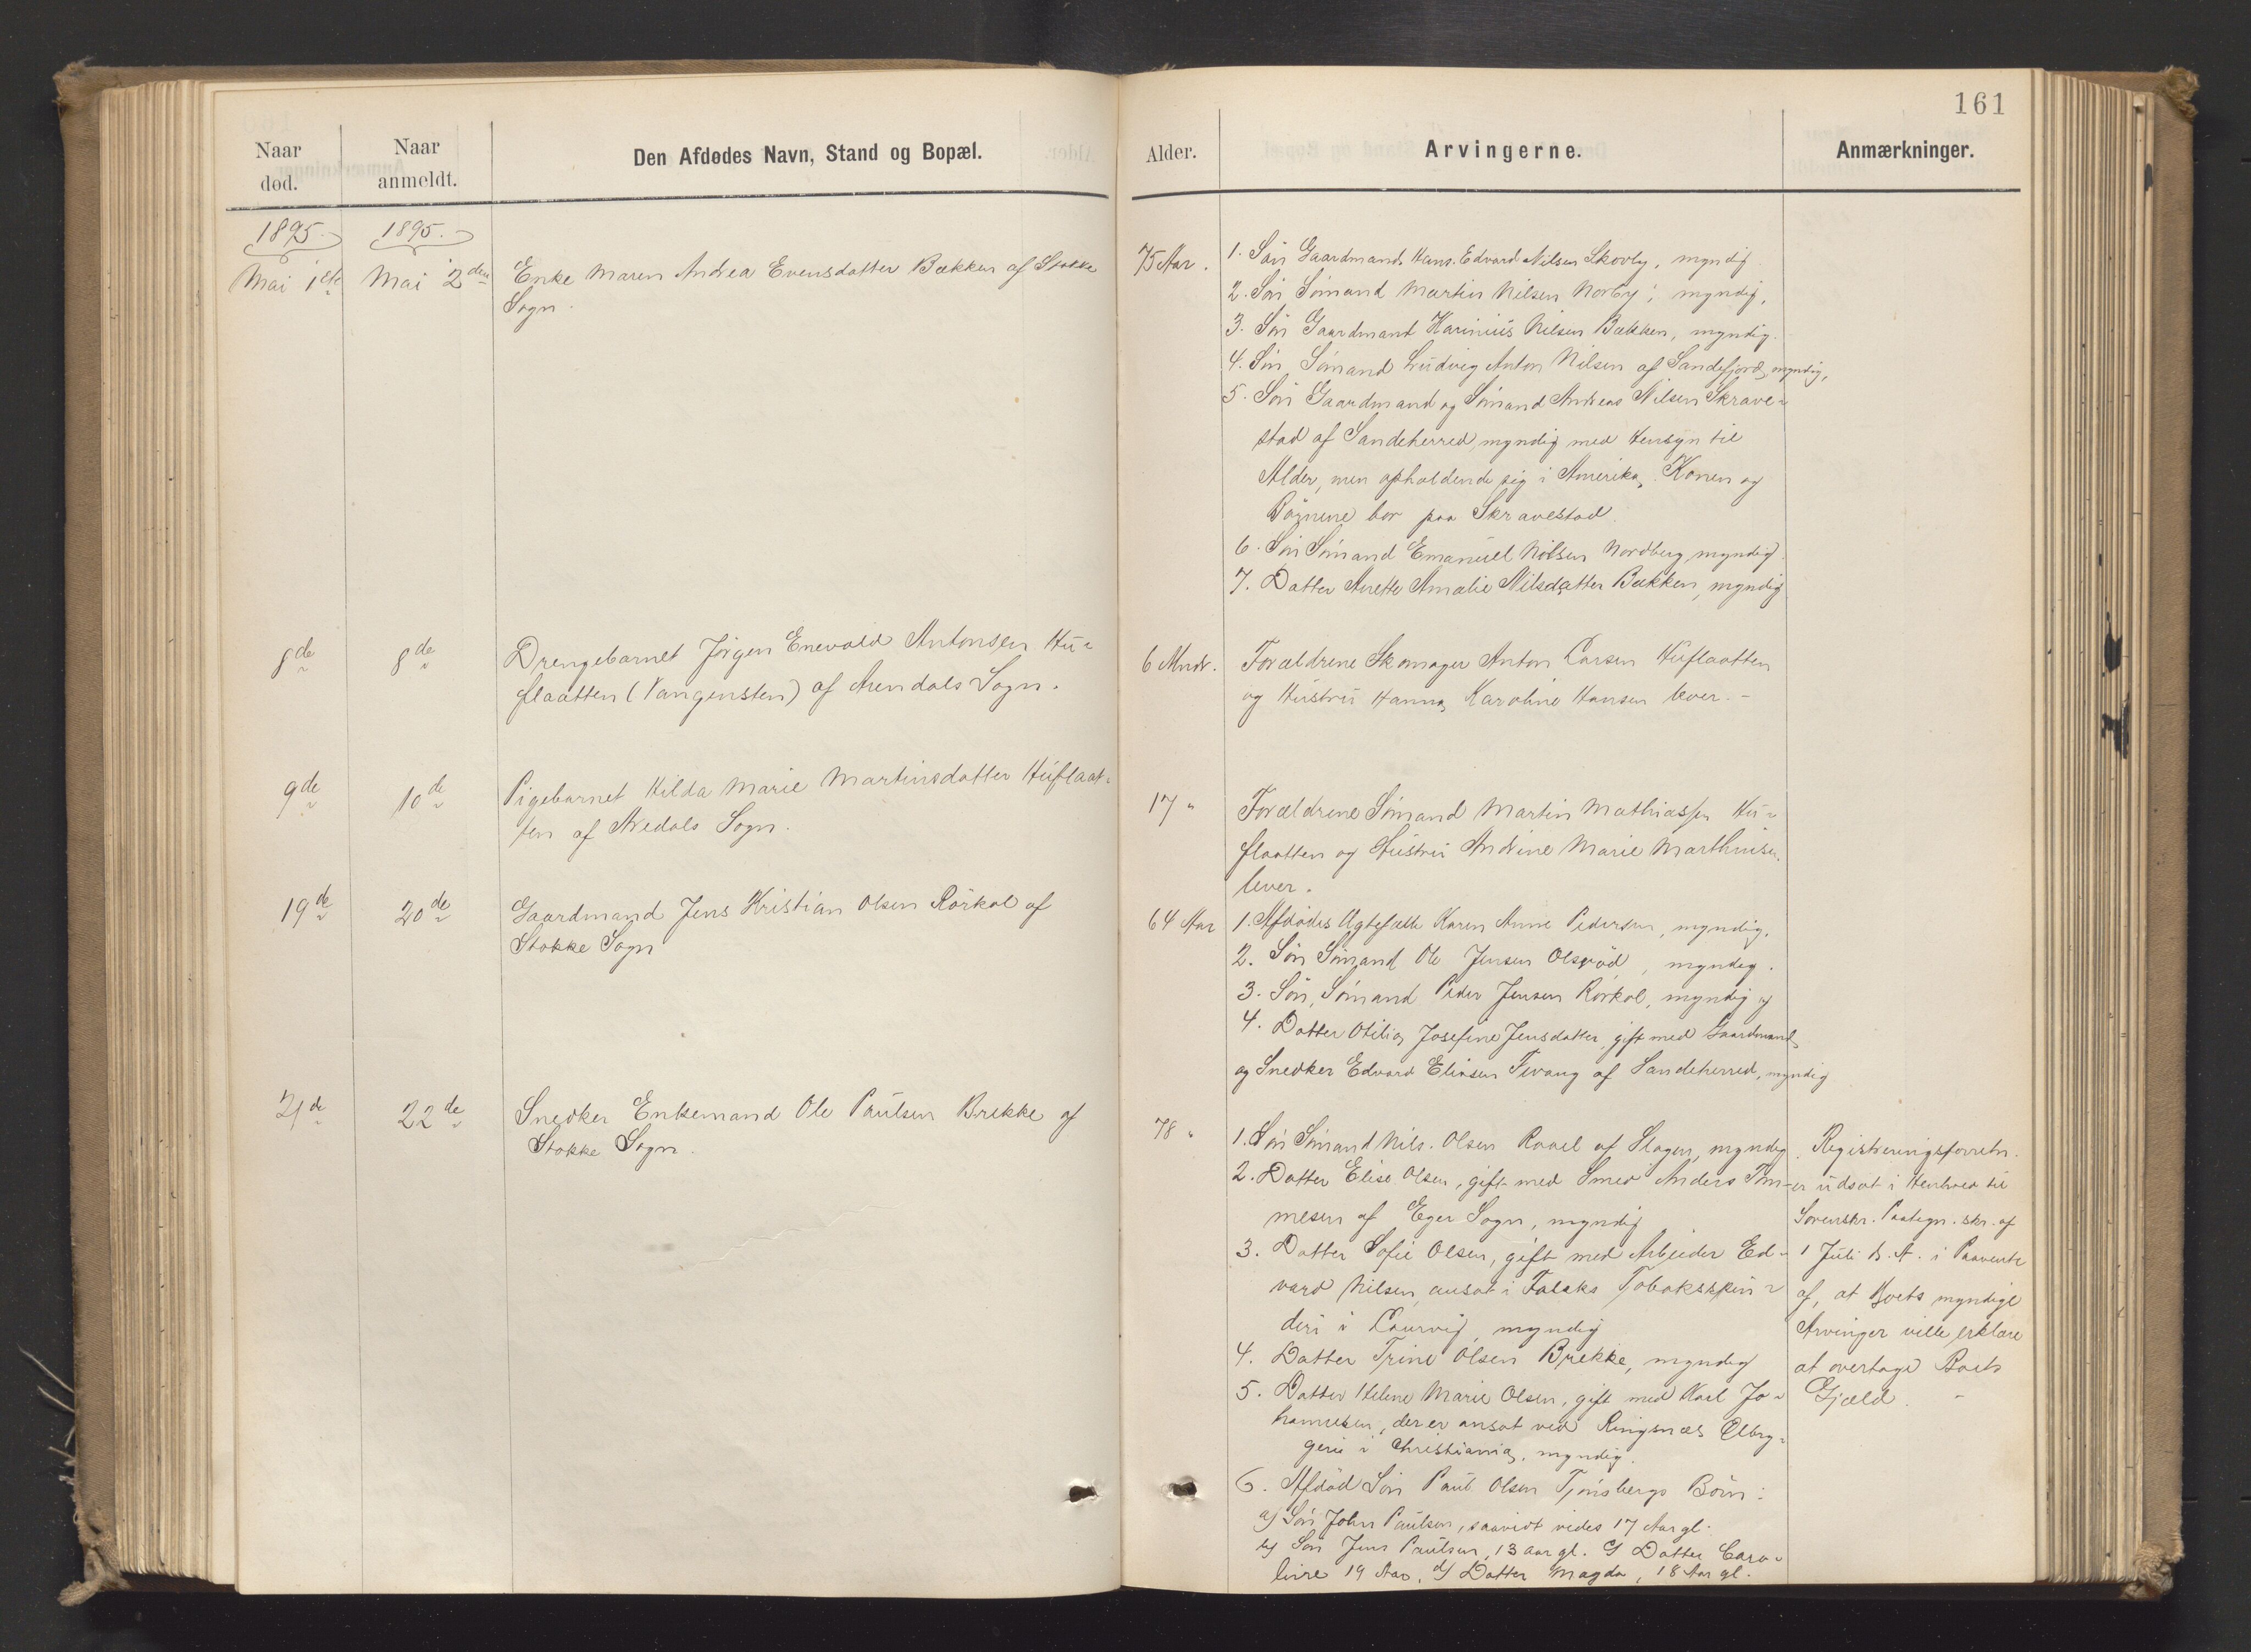 161
Naar død.
Naar anmeldt.
Den Afdødes Navn, Stand og Bopæl.
Alder.
Arvingerne.
Anmærkninger.
1895. 1895.
Mai 1ste Mai 2den
Enke Maren Andrea Evensdatter Bækken af Stokke
Sogn.
75 Aar.
1. Søn Gaardmand Hans Edvard Nilsen Skovly, myndig
2. Søn Sømand Martin Nilsen Norby, myndig,
3. Søn Gaardmand Karinius Nilsen Bækken, myndig.
4. Søn Sømand Ludvig Anton Nilsen af Sandefjord, myndig,
5. Søn Gaardmand og Sømand Andreas Nilsen Skrave-
stad af Sandeherred, myndig med Hensyn til
Alder, men opholdende sig i Amerika. Konen og
Børnene bor paa Skravestad.
6. Søn Sømand Emanuel Nilsen Nordberg, myndig.
7. Datter Anette Amalie Nilsdatter Bækken, myndig
8de 8de
Drengebarnet Jørgen Enevold Antonsen Hu-
flaatten (Vangensten) af Arendals Sogn.
6 Mndr.
Forældrene Skomager Anton Larsen Huflaatten
og Hustru Hanna Karoline Hansen lever. -
9de 10de
Pigebarnet Hilda Marie Martinsdatter Huflaat-
ten af Aredals Sogn.
17 "
Forældrene Sømand Martin Mathiassen Hu-
flaatten og Hustru Andrine Marie Marthinsen
lever.
19de 20de
Gaardmand Jens Kristian Olsen Rørkol af
Stokke Sogn
64 Aar
1. Afdødes Ægtefælle Karen Anne Pedersen, myndig.
2. Søn Sømand Ole Jensen Olsrød, myndig.
3. Søn, Sømand Peder Jensen Rørkol, myndig og
4. Datter Otilia Josefine Jensdatter, gift med Gaardmand
og Snedker Edvard Eliasen Tevang af Sandeherred, myndig
21de 22de
Snedker Enkemand Ole Paulsen Brekke af
Stokke Sogn.
78 "
1. Søn Sømand Nils Olsen Roael af Slagen, myndig.
2. Datter Elise Olsen, gift med Smed Anders Tom-
mesen af Eger Sogn, myndig
3. Datter Sofie Olsen, gift med Arbeider Ed-
vard Nilsen, ansat i Falaks Tobaksspin-
deri i Laurvig, myndig
4. Datter Trine Olsen Brekke, myndig
5. Datter Helene Marie Olsen, gift med Karl Jo-
hannesen, der er ansat ved Ringnæs Ølbryg-
geri i Christiania, myndig.
6. Afdød Søn Paul Olsen Tjønsbergs Børn:
a) Søn John Paulsen, saavidt vides 17 Aar gl.
b) Søn Jens Paulsen, 13 aar gl. c) Datter Caro-
line 19 Aar. d) Datter Magda, 18 Aar gl.
Registreringsforretn.
er udsat i Henhold til
Sorenskr. Paategn. skr. af
1 Juli d. A. i Paavente
af, at Boets myndige
Arvinger ville erklære
at overtage Boets
Gjæld. -